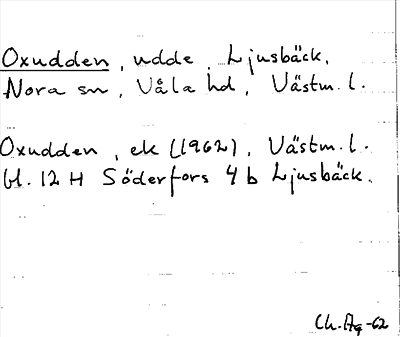 Oxudden, udde, Ljusbäck,
Nora sn, Våla hd, Västm. l.
Oxudden, ek (1962), Västm. l.
bl. 12 H Söderfors 4 b Ljusbäck.
Ch. Ag -62